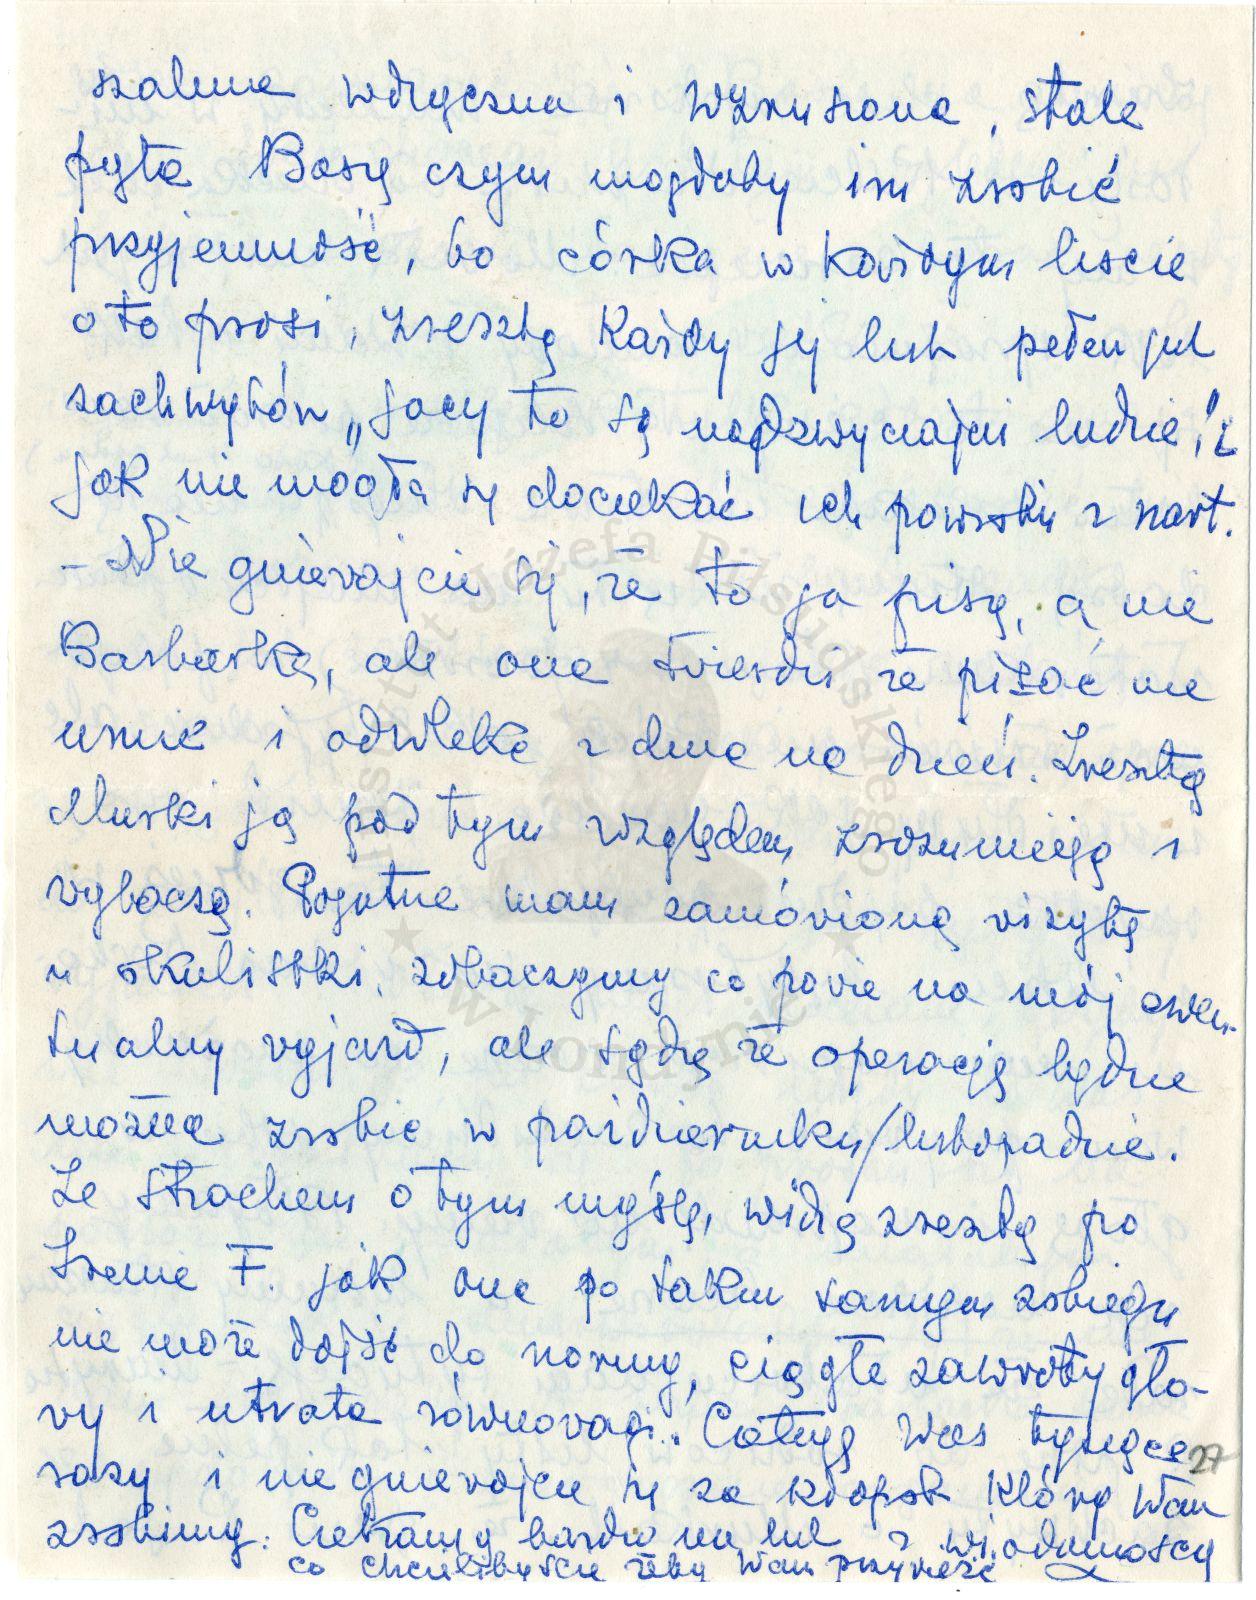 szalenie wdzięczna i wzruszona, stale
pyta Basię czym mogłaby im zrobić
przyjemność, bo córka w każdym liście
o to prosi, zresztą każdy jej list pełen jest
zachwytów „jacy to są nadzwyczajni ludzie! i
jak nie mogła się doczekać ich powrotu z nart.
- Nie gniewajcie się, że to ja piszę, a nie
Barbarka, ale ona twierdzi że pisać nie
umie i odwleka z dnia na dzień. Zresztą
ją pod tym względem zrozumieją i
wybaczą. Pojutrze mam zamówioną wizytę
u okulistki, zobaczymy co powie na mój ewen-
tualny wyjazd, ale sądzę że operację będzie
można zrobić w październiku/listopadzie.
Ze strachem o tym myślę, widzę zresztą po
Irenie F. jak ona po takim samym zabiegu
nie może dojść do normy, ciągłe zawroty gło-
wy i utrata równowagi. Całuję Was tysiące
razy i nie gniewajcie się za kłopot który Wam
zrobimy. Czekamy bardzo na list z wiadomością
co chcielibyście żeby Wam przywieźć
27
Instytut Józefa Piłsudskiego
w Londynie